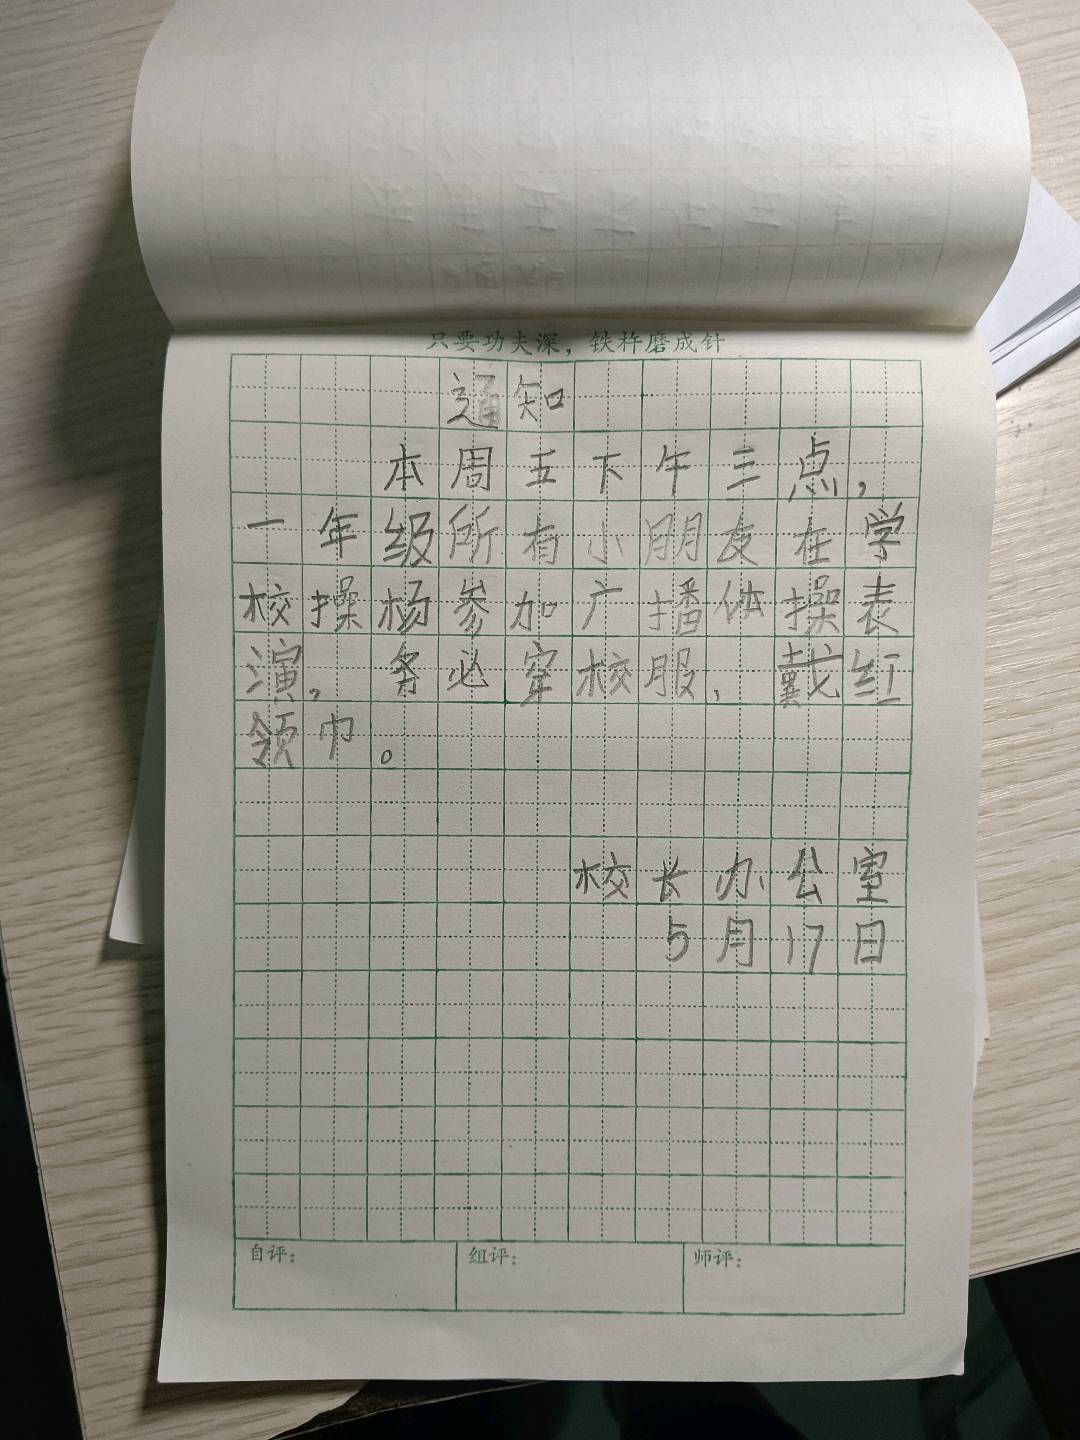 只要功夫深，铁杵磨成针
通知
本周五下午三点，
一年级所有小朋友在学
校操杨参加广播体操表
演，务必穿校服，戴红
领巾。
校长办公室
5月17日
自评： 组评： 师评：